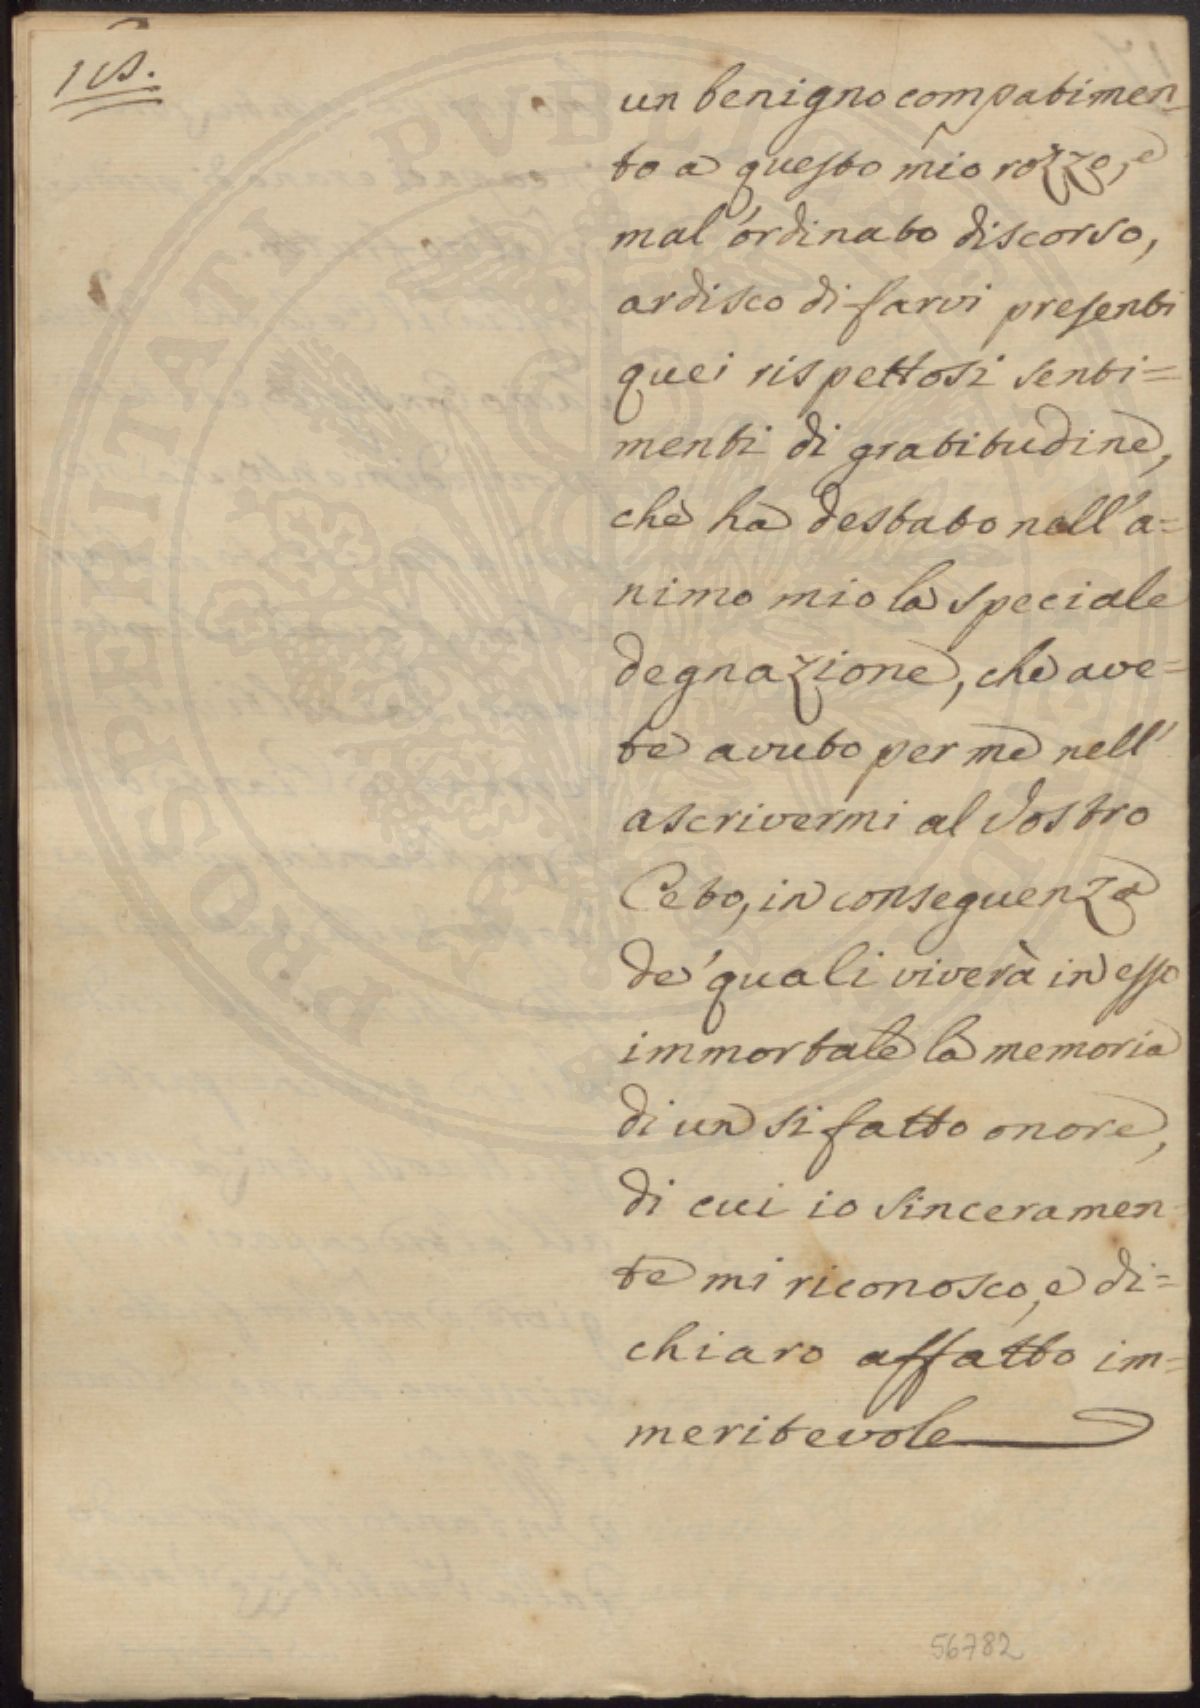 un benigno compatimen-
to a questo mio rozzo, e
mal'ordinato discorso,
ardisco di farvi presenti
quei rispettosi senti=
menti di gratitudine,
che ha destato nell'a=
nimo mio la speciale
degnazione, che ave=
te avuto per me nell'
ascrivermi al Vostro
Ceto, in conseguenza
de' quali viverà in esso
immortale la memoria
di un si fatto onore,
di cui io sinceramen-
te mi riconosco, e di=
chiaro affatto im=
meritevole
56782
PROSPERITATI PUBLICAE